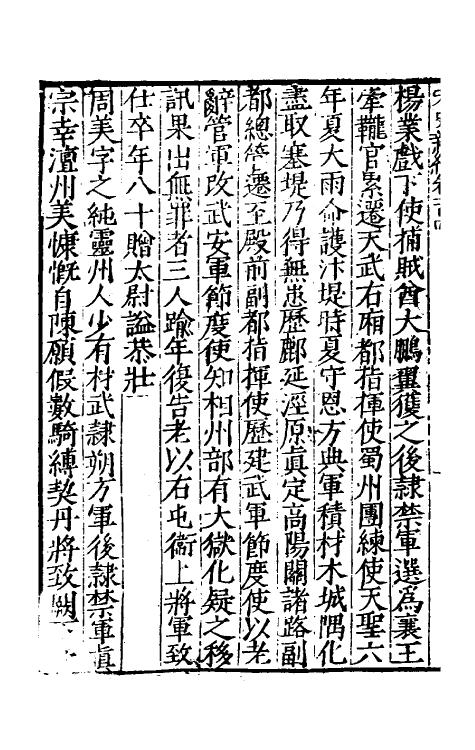 楊業戲下使捕賊酋大鵬翼獲之後隷禁軍選爲襄王
牽轣官累遷天武右厢都指揮使蜀州團練使天聖六
年夏大雨命護汴堤時夏守恩方典軍積材木城隅化
盡取塞堤乃得無患歷鄜延涇原眞定高陽關諸路副
都總管遷至殿前副都指揮使歷建武軍節度使以老
辭管軍改武安軍節度使知相州部有大獄化疑之移
訊果出無罪者三人踰年復告老以右屯衛上將軍致
仕卒年八十贈太尉謚恭壯
周美字之純靈州人少有材武隷朔方軍後隷禁軍眞
宗幸澶州美慷慨自陳願假數騎縛契丹將致闕下